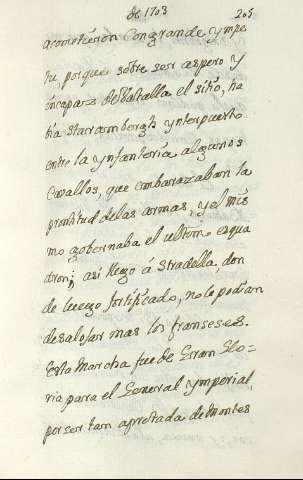 de 1703 205
acometieron Con grande ympe
tu, porque sobre ser aspero y
incapaz de batalla el sitio, ha
bia starrambergh ynterpuesto
entre la ynfanteria algunos
Cavallos, que embarazaban la
prontitud de las armas, y el mis
mo gobernaba el ultimo esqua
dron; asi llego á Stradella, don
de luego fortificado, no le podian
desalojar mas los franseses.
Esta Marcha fue de Gran Glo-
ria para el General ymperial,
por ser tan apretada de Montes